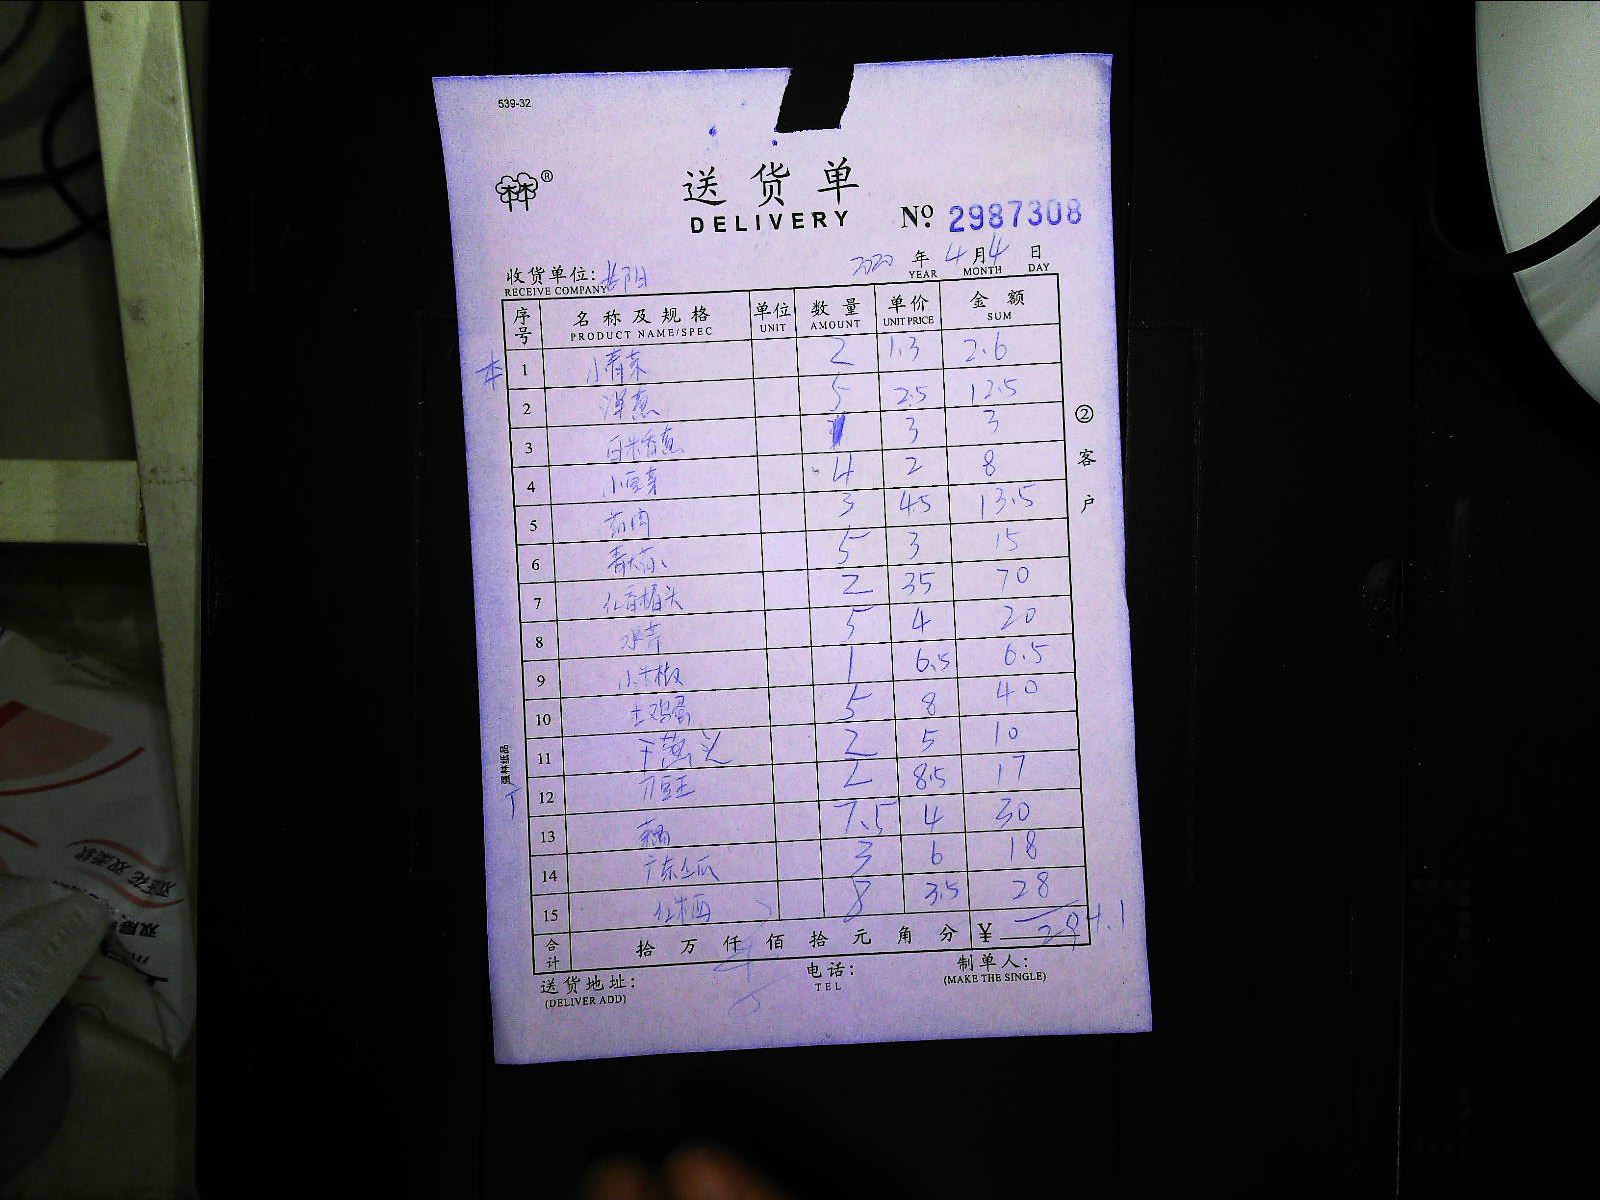 539-32
林®
送货单
DELIVERY
№ 2987308
2020 年 4 月 4 日
YEAR MONTH DAY
收货单位: 岳阳
RECEIVE COMPANY
序号 名称及规格 单位 数量 单价 金额
PRODUCT NAME/SPEC UNIT AMOUNT UNIT PRICE SUM
1 小青菜 2 1.3 2.6
2 洋葱 5 2.5 12.5
3 3 3
4 小豆芽 4 2 8
5 3 4.5 13.5
6 5 3 15
7 2 35 70
8 5 4 20
9 小米椒 1 6.5 6.5
10 土鸡蛋 5 8 40
11 干葱头 2 5 10
12 刀豆王 2 8.5 17
13 7.5 4 30
14 广东 3 6 18
15 8 3.5 28
合计 拾 万 仟 佰 拾 元 角 分 ¥ 294.1
送货地址: 电话: 制单人:
(DELIVER ADD) TEL (MAKE THE SINGLE)
②客户
强林纸品